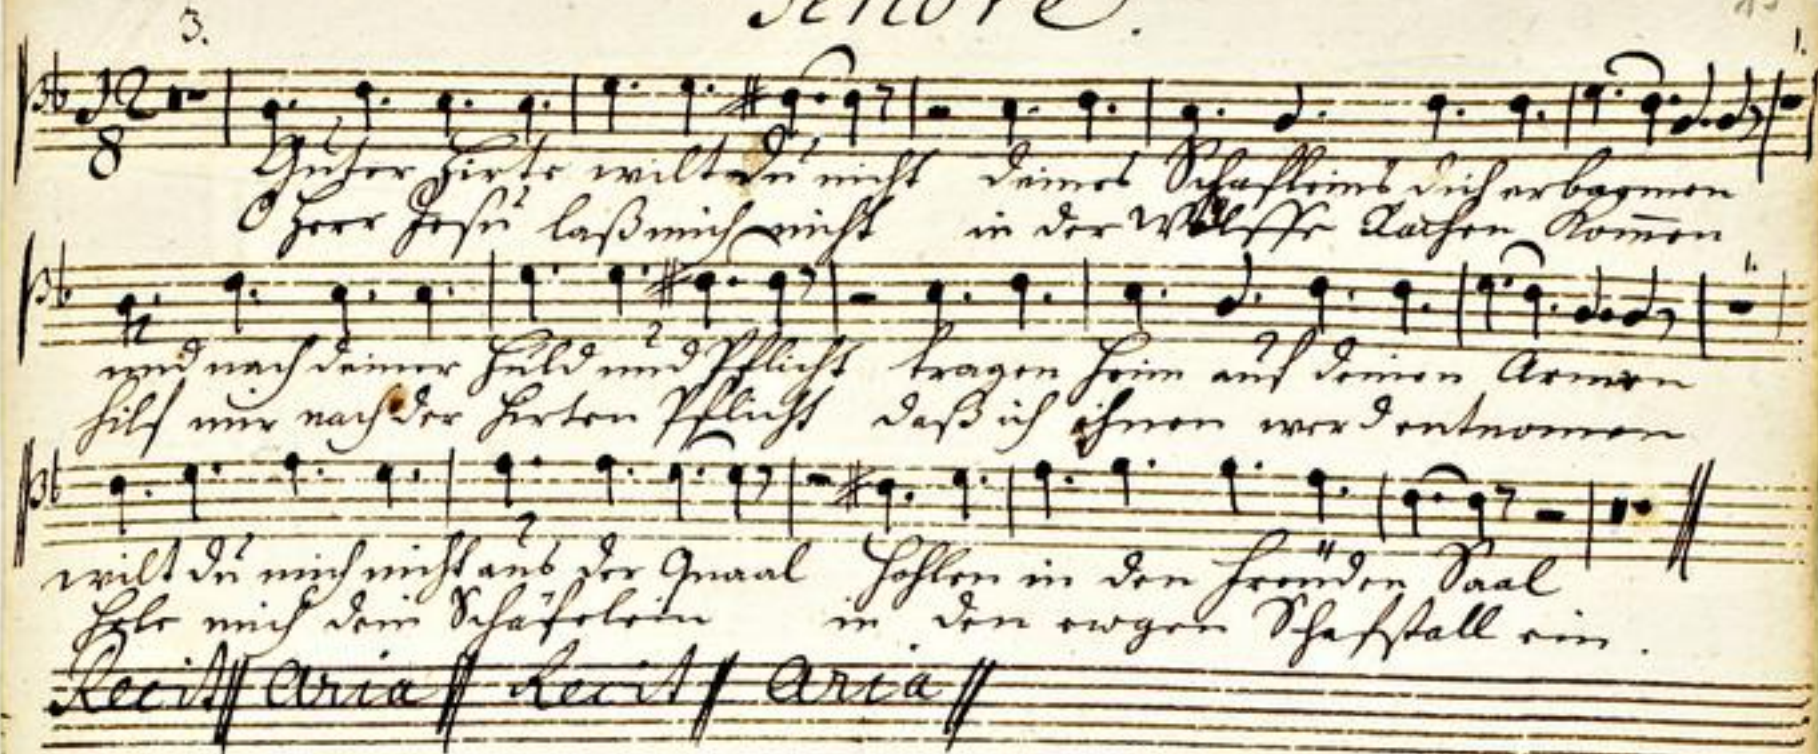 Tenore.
3.
12
8
1.
Guter Hirte wilt du nicht deines Schäffleins dich erbarmen
O Herr Jesu laß mich nicht in der Wölffe Rachen Kom̅en
1.
und nach deiner Huld und Pflicht tragen heim auf deinen Armen
hilf mir nach der Hirten Pflicht daß ich ihnen werd entnomen
wilt du mich nicht aus der Quaal hohlen in den Freuden Saal
hole mich dein Schäfelein in den ewgen Schafstall ein.
Recit || Aria || Recit || Aria ||